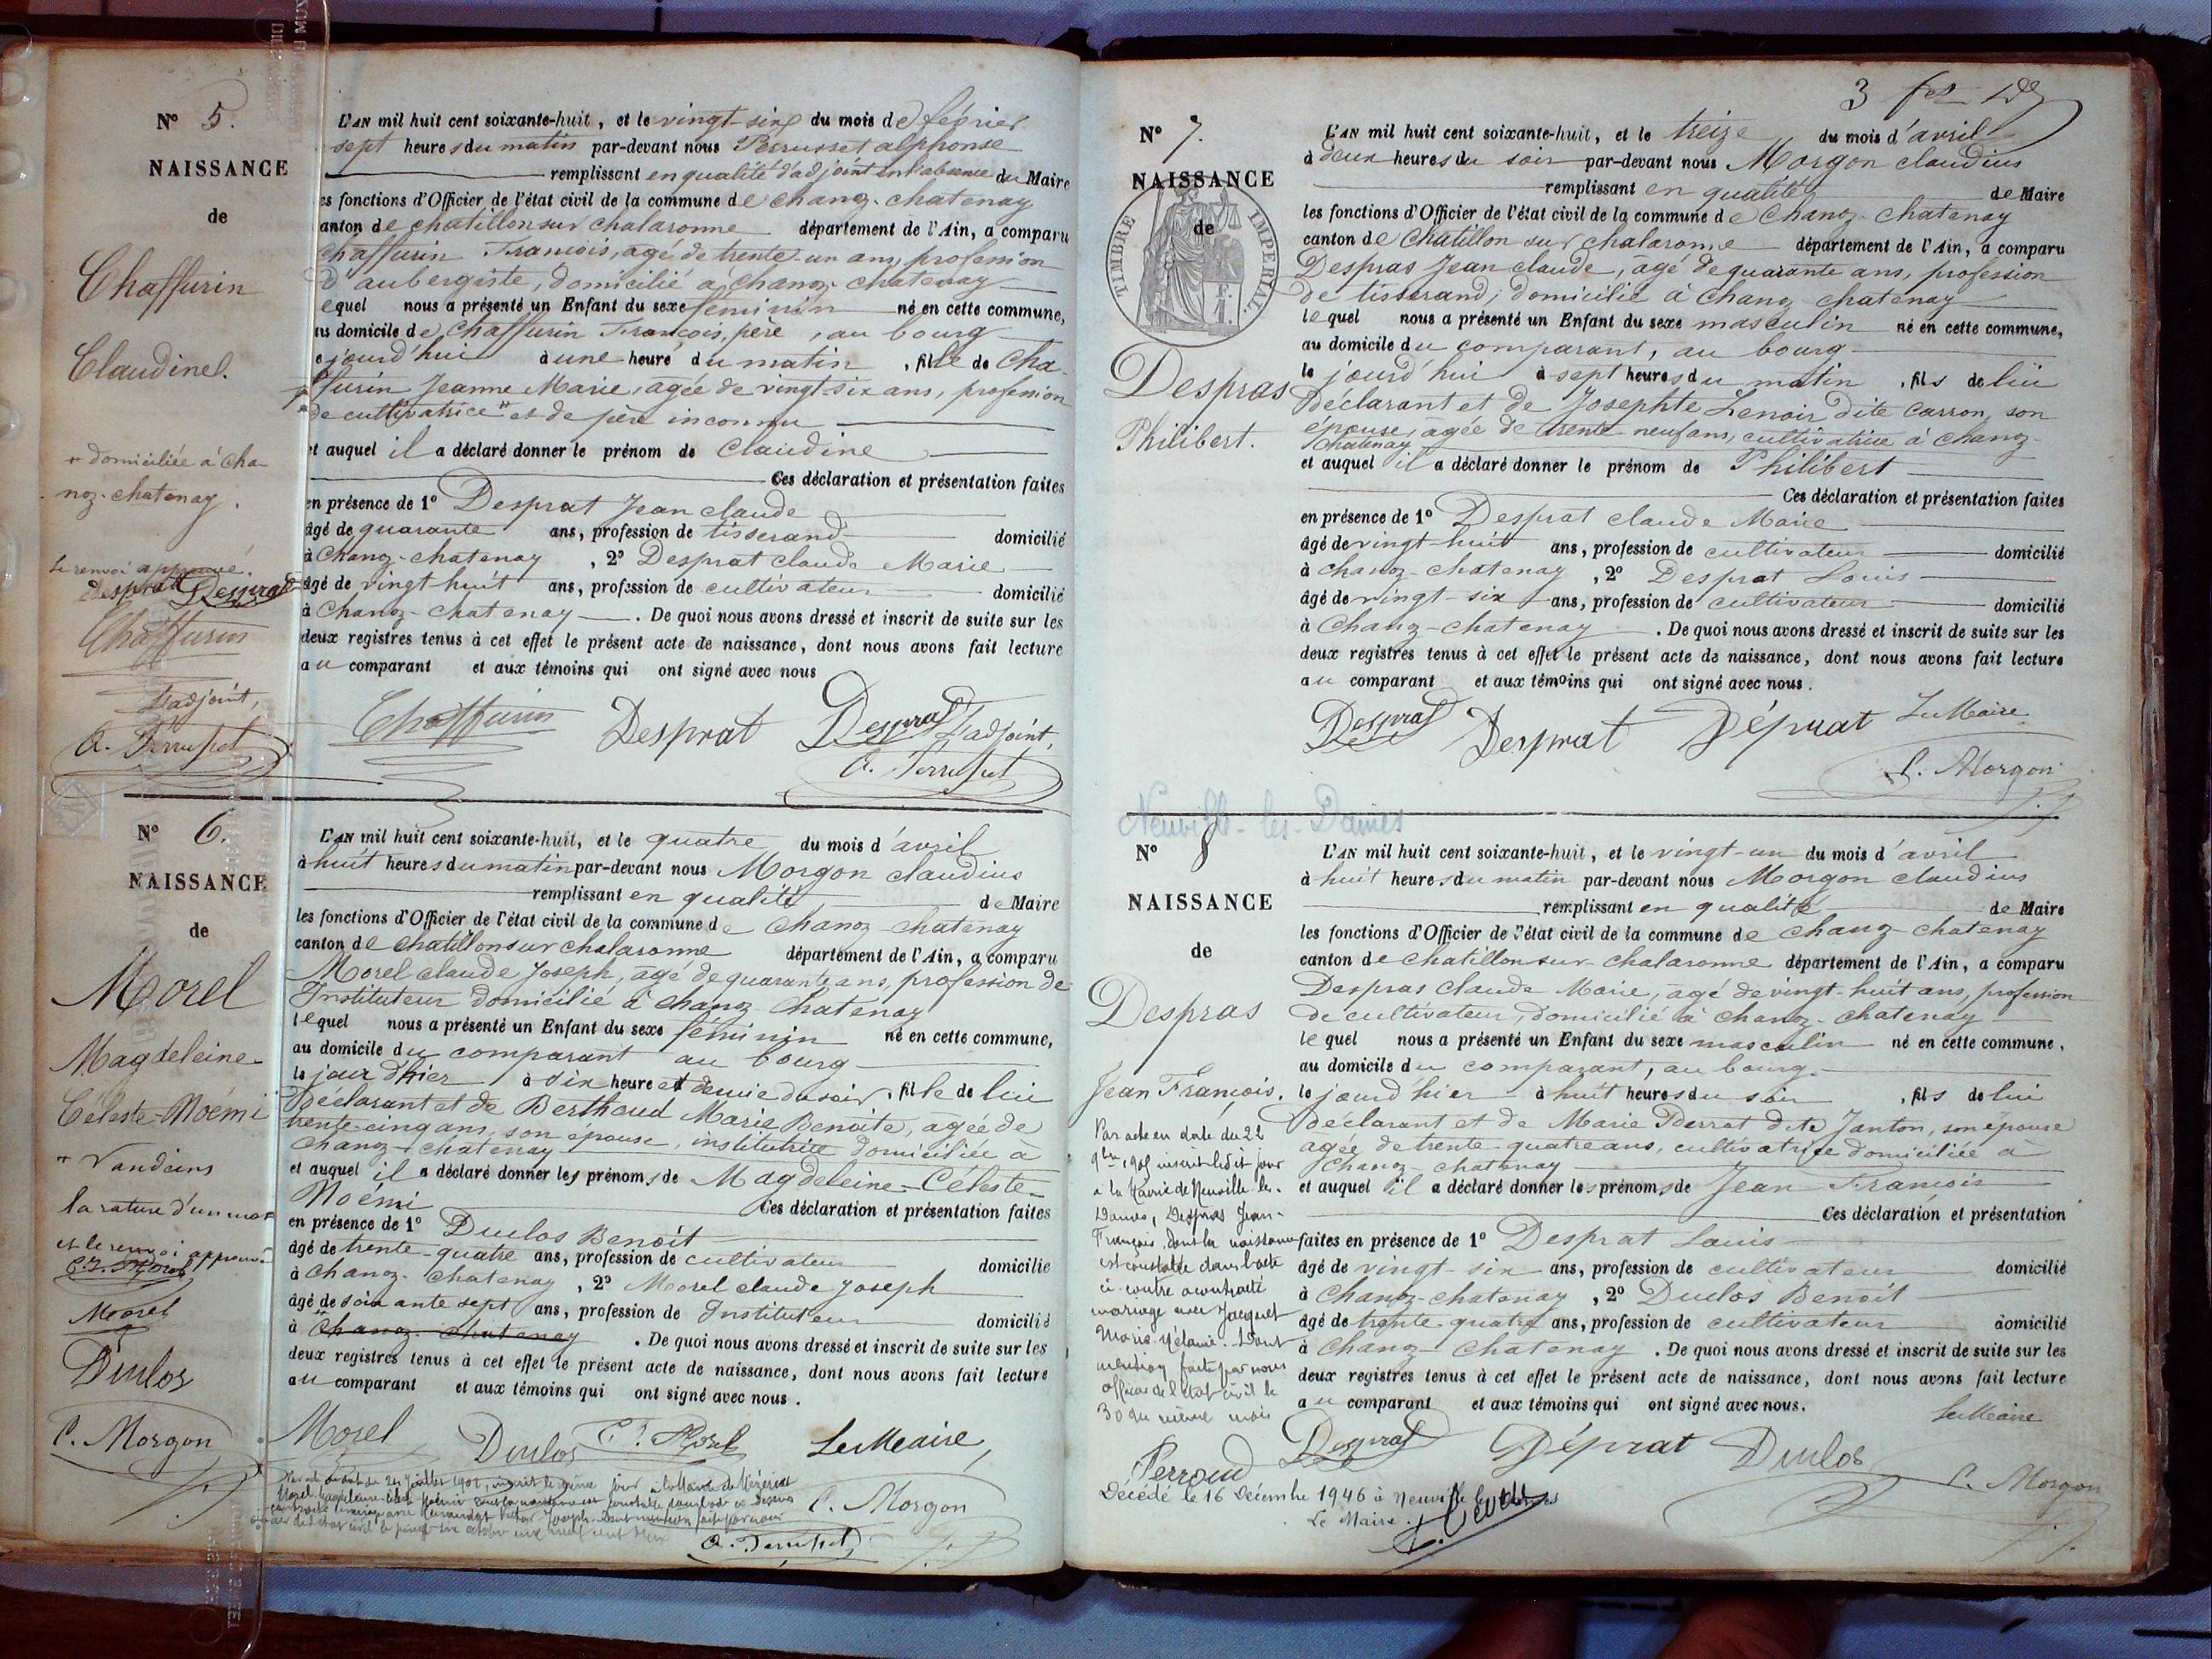 N° 5.
NAISSANCE
de
Chaffurin
Claudine.
domiciliée à Cha-
noz-chatenay.
Le renvoi approuvé.
Desprat Despras
Chaffurin
L'adjoint,
A. Perrusset
L'AN mil huit cent soixante-huit, et le vingt-six du mois de février
sept heures du matin par-devant nous Perrusset alphonse
remplissant en qualité d'adjoint en l'absence du Maire
es fonctions d'Officier de l'état civil de la commune de chanoz-chatenay
anton de chatillon sur chalaronne département de l'Ain, a comparu
Chaffurin François, agé de trente-un ans, profession
d'aubergiste, domicilié à chanoz-chatenay
equel nous a présenté un Enfant du sexe féminin né en cette commune,
au domicile de Chaffurin François, père, au bourg
ejourd'hui à une heure du matin, fille de Cha-
ffurin Jeanne Marie, agée de vingt-six ans, profession
de cultivatrice et de père inconnu
et auquel il a déclaré donner le prénom de Claudine
Ces déclaration et présentation faites
en présence de 1° Desprat Jean claude
âgé de quarante ans, profession de tisserand domicilié
à Chanoz-chatenay, 2° Desprat Claude Marie
âgé de vingt huit ans, profession de cultivateur domicilié
à Chanoz-chatenay. De quoi nous avons dressé et inscrit de suite sur les
deux registres tenus à cet effet le présent acte de naissance, dont nous avons fait lecture
au comparant et aux témoins qui ont signé avec nous
Chaffurin Desprat Despras L'adjoint,
A. Perrusset
N° 6.
NAISSANCE
de
Morel
Magdeleine-
Céleste-Noémi
Vandeins
la rature d'un mot
et le renvoi approuvé
C. J. Morel
Morel
Duclos
C. Morgon
L'AN mil huit cent soixante-huit, et le quatre du mois d'avril
à huit heures du matin par-devant nous Morgon claudius
remplissant en qualité de Maire
les fonctions d'Officier de l'état civil de la commune de Chanoz chatenay
canton de chatillon sur chalaronne département de l'Ain, a comparu
Morel claude Joseph, agé de quarante ans, profession de
Instituteur domicilié à chanoz chatenay
lequel nous a présenté un Enfant du sexe féminin né en cette commune,
au domicile du comparant au bourg
le jour d'hier à six heure et demie du soir, fille de lui
Déclarant et de Berthoud Marie Benoite, agée de
trente-cinq ans, son épouse, institutrice domiciliée à
Chanoz-chatenay
et auquel il a déclaré donner les prénoms de Magdeleine-Céleste-
Noémi Ces déclaration et présentation faites
en présence de 1° Duclos Benoît
âgé de trente-quatre ans, profession de cultivateur domicilié
à Chanoz-chatenay, 2° Morel claude Joseph
âgé de soixante sept ans, profession de Instituteur domicilié
à Chanoz-chatenay. De quoi nous avons dressé et inscrit de suite sur les
deux registres tenus à cet effet le présent acte de naissance, dont nous avons fait lecture
au comparant et aux témoins qui ont signé avec nous.
Morel Duclos C. J. Morel Le Maire,
C. Morgon
A. Perrusset
3
N° 7.
NAISSANCE
de
TIMBRE IMPERIAL
Despras
Philibert.
L'AN mil huit cent soixante-huit, et le treize du mois d'avril
à deux heures du soir par-devant nous Morgon claudius
remplissant en qualité de Maire
les fonctions d'Officier de l'état civil de la commune de Chanoz-chatenay
canton de Chatillon sur chalaronne département de l'Ain, a comparu
Despras Jean claude, âgé de quarante ans, profession
de tisserand, domicilié à Chanoz chatenay
lequel nous a présenté un Enfant du sexe masculin né en cette commune,
au domicile du comparant, au bourg
le jourd'hui à sept heures du matin, fils de lui
déclarant et de Josephte Lenoir dite Carron, son
épouse, agée de trente-neuf ans, cultivatrice à chanoz-
chatenay
et auquel il a déclaré donner le prénom de Philibert
Ces déclaration et présentation faites
en présence de 1° Desprat claude Marie
âgé de vingt-huit ans, profession de cultivateur domicilié
à chanoz-chatenay, 2° Desprat Louis
âgé de vingt-six ans, profession de cultivateur domicilié
à Chanoz-chatenay. De quoi nous avons dressé et inscrit de suite sur les
deux registres tenus à cet effet le présent acte de naissance, dont nous avons fait lecture
au comparant et aux témoins qui ont signé avec nous.
Despras Desprat Déprat Le Maire.
C. Morgon
Neuville-les-Dames
N° 8
NAISSANCE
de
Despras
Jean François.
Par acte en date du 22
9bre inscrit ledit jour
à la Mairie de Neuville-les-
Dames, Despras Jean-
François, dont la naissance
est constatée dans l'acte
ci-contre a contracté
mariage avec Jacquet
Marie-Mélanie. Dont
mention faite par nous
officier de l'état civil le
30 du même mois
Perroud
Décédé le 16 Décembre 1946 à Neuville les Dames
Le Maire.
L'AN mil huit cent soixante-huit, et le vingt-un du mois d'avril
à huit heures du matin par-devant nous Morgon claudius
remplissant en qualité de Maire
les fonctions d'Officier de l'état civil de la commune de chanoz-chatenay
canton de chatillon sur chalaronne département de l'Ain, a comparu
Despras claude Marie, agé de vingt-huit ans, profession
de cultivateur, domicilié à chanoz-chatenay
lequel nous a présenté un Enfant du sexe masculin né en cette commune,
au domicile du comparant, au bourg.
le jourd'hier à huit heures du soir, fils de lui
déclarant et de Marie Perrat dite Janton, son épouse
agée de trente-quatre ans, cultivatrice domiciliée à
Chanoz-chatenay
et auquel il a déclaré donner les prénoms de Jean François
Ces déclaration et présentation
faites en présence de 1° Desprat Louis
âgé de vingt-six ans, profession de cultivateur domicilié
à Chanoz-chatenay, 2° Duclos Benoît
âgé de trente-quatre ans, profession de cultivateur domicilié
à Chanoz-Chatenay. De quoi nous avons dressé et inscrit de suite sur les
deux registres tenus à cet effet le présent acte de naissance, dont nous avons fait lecture
au comparant et aux témoins qui ont signé avec nous.
Le Maire
Despras Déprat Duclos C. Morgon